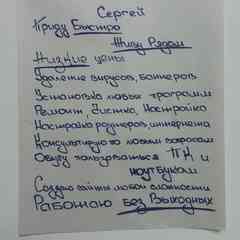 Сергей
Приду Быстро
Живу Рядом
Низкие цены
Удаление вирусов, баннеров
Установка любых программ
Ремонт, Чистка, Настройка
Настройка роутеров, интернета
Консультирую по любым вопросам
Обучу пользоваться ПК и
ноутбуком
Создаю сайты любой сложности
Работаю без Выходных